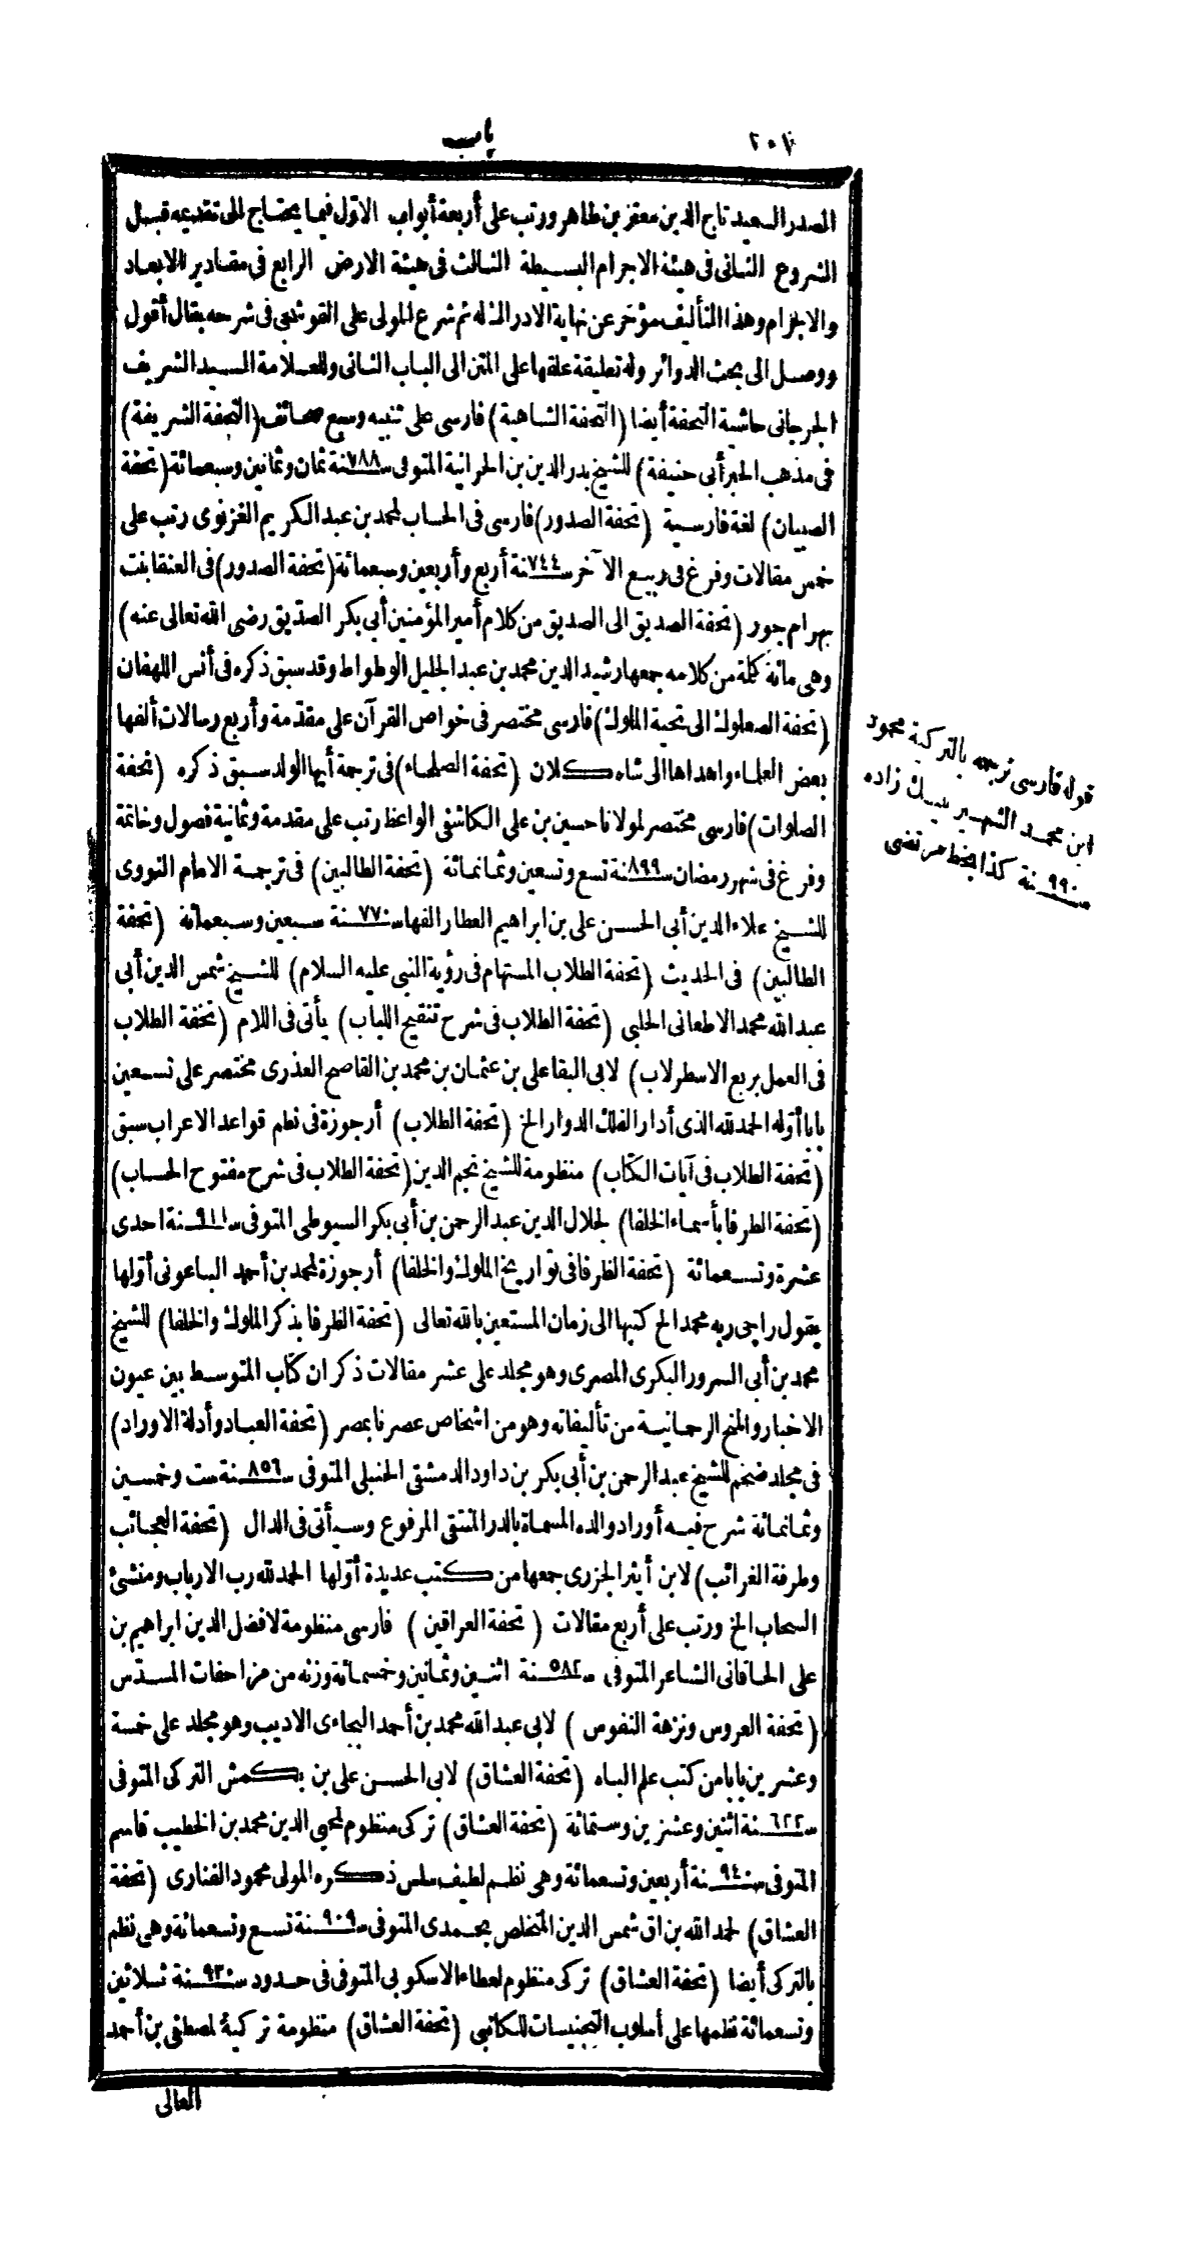 ٢٠٧
باب
الصدر السعيد تاج الدين معتز بن طاهر ورتب على أربعة أبواب الاوّل فيما يحتاج الى تقديمه قبل
الشروع الثانى فى هيئة الاجرام البسيطة الثالث فى هيئة الارض الرابع فى مقادير الابعاد
والاجرام وهذا التأليف مؤخر عن نهاية الادراك له ثم شرع المولى على القوشجى فى شرحه بقال أقول
ووصل الى بحث الدوائر وله تعليقة علقها على المتن الى الباب الثانى وللعلامة السيد الشريف
الجرجانى حاشية التحفة أيضا (التحفة الشاهية) فارسى على تنبيه وسبع صحائف (التحفة الشريفة)
فى مذهب الحبر أبى حنيفة) للشيخ بدر الدين بن الحرانية المتوفى سنة ٧٨٨ ثمان وثمانين وسبعمائة (تحفة
الصبيان) لغة فارسية (تحفة الصدور) فارسى فى الحساب لمحمد بن عبد الكريم الغزنوى رتب على
خمس مقالات وفرغ فى ربيع الآخر سنة ٧٤٤ أربع وأربعين وسبعمائة (تحفة الصدور) فى العنقا بنت
بهرام جور (تحفة الصديق الى الصديق من كلام أمير المؤمنين أبى بكر الصدّيق رضى الله تعالى عنه)
وهى مائة كلمة من كلامه جمعها رشيد الدين محمد بن عبد الجليل الوطواط وقد سبق ذكره فى أنس اللهفان
(تحفة الصعلوك الى تحية الملوك) فارسى مختصر فى خواص القرآن على مقدّمة وأربع رسالات ألفها
بعض العلماء واهداها الى شاه كلان (تحفة الصلحاء) فى ترجمة أيها الولد سبق ذكره (تحفة
الصلوات) فارسى مختصر لمولانا حسين بن على الكاشفى الواعظ رتب على مقدمة وثمانية فصول وخاتمة
وفرغ فى شهر رمضان سنة ٨٩٩ تسع وتسعين وثمانمائة (تحفة الطالبين) فى ترجمة الامام النووى
للشيخ علاء الدين أبى الحسن على بن ابراهيم العطار الفها سنة ٧٧٠ سبعين وسبعمائة (تحفة
الطالبين) فى الحديث (تحفة الطلاب المستهام فى رؤية النبى عليه السلام) للشيخ شمس الدين أبى
عبد الله محمد الاطعانى الحلبى (تحفة الطلاب فى شرح تنقيح اللباب) يأتى فى اللام (تحفة الطلاب
فى العمل بربع الاسطرلاب) لابى البقا على بن عثمان بن محمد بن القاصح العذرى مختصر على تسعين
بابا أوّله الحمد لله الذى أدار الفلك الدوار الخ (تحفة الطلاب) أرجوزة فى نظم قواعد الاعراب سبق
(تحفة الطلاب فى آيات الكتاب) منظومة للشيخ نجم الدين (تحفة الطلاب فى شرح مفتوح الحساب)
(تحفة الظرفا بأسماء الخلفا) لجلال الدين عبد الرحمن بن أبى بكر السيوطى المتوفى سنة ٩١١ احدى
عشرة وتسعمائة (تحفة الظرفا فى تواريخ الملوك والخلفا) أرجوزة لمحمد بن أحمد الباعونى أوّلها
يقول راجى ربه محمد الخ كتبها الى زمان المستعين بالله تعالى (تحفة الظرفا بذكر الملوك والخلفا) للشيخ
محمد بن أبى السرور البكرى المصرى وهو مجلد على عشر مقالات ذكر ان كتاب المتوسط بين عيون
الاخبار والمنح الرحمانية من تأليفاته وهو من اشخاص عصرنا بمصر (تحفة العباد وأدلة الاوراد)
فى مجلد ضخم للشيخ عبد الرحمن بن أبى بكر بن داود الدمشقى الحنبلى المتوفى سنة ٨٥٦ ست وخمسين
وثمانمائة شرح فيه أوراد والده المسماة بالدر المنتقى المرفوع وسيأتى فى الدال (تحفة العجائب
وطرفة الغرائب) لابن أثير الجزرى جمعها من كتب عديدة أوّلها الحمد لله رب الارباب ومنشئ
السحاب الخ ورتب على أربع مقالات (تحفة العراقين) فارسى منظومة لافضل الدين ابراهيم بن
على الخاقانى الشاعر المتوفى سنة ٥٨٢ اثنين وثمانين وخمسمائة وزنه من مزاحفات المسدّس
(تحفة العروس ونزهة النفوس) لابى عبد الله محمد بن أحمد البجاءى الاديب وهو مجلد على خمسة
وعشرين بابا من كتب علم الباه (تحفة العشاق) لابى الحسن على بن بكمش التركى المتوفى
سنة ٦٢٢ اثنين وعشرين وستمائة (تحفة العشاق) تركى منظوم لمحيى الدين محمد بن الخطيب قاسم
المتوفى سنة ٩٤٠ أربعين وتسعمائة وهى نظم لطيف سلس ذكره المولى محمود الفنارى (تحفة
العشاق) لحمد الله بن اق شمس الدين المتخلص بحمدى المتوفى سنة ٩٠٩ تسع وتسعمائة وهى نظم
بالتركى أيضا (تحفة العشاق) تركى منظوم لعطاء الاسكوبى المتوفى فى حدود سنة ٩٣٠ ثلاثين
وتسعمائة نظمها على أسلوب التجنيسات للكاتبى (تحفة العشاق) منظومة تركية لمصطفى بن أحمد
العالى
قوله فارسى ترجمه بالتركية محمود
ابن محمد الشهير ببيك زاده
سنة ٩٩٠ كذا بخط مرتضى